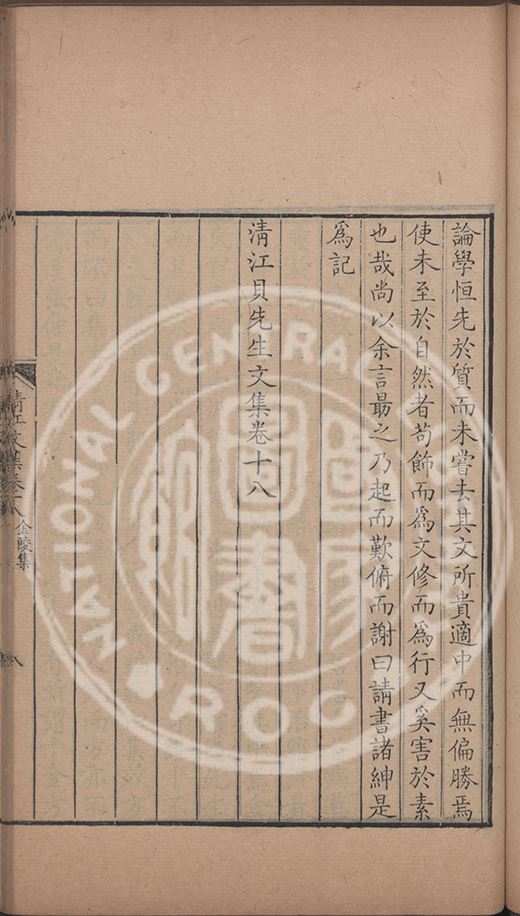 論學恒先於質而未嘗去其文所貴適中而無偏勝焉
使未至於自然者苟飾而爲文修而爲行又奚害於素
也哉尚以余言勗之乃起而歎俯而謝曰請書諸紳是
爲記
清江貝先生文集卷十八
清江文集卷十八
金陵集
NATIONAL CENTRAL
ROC
圖書